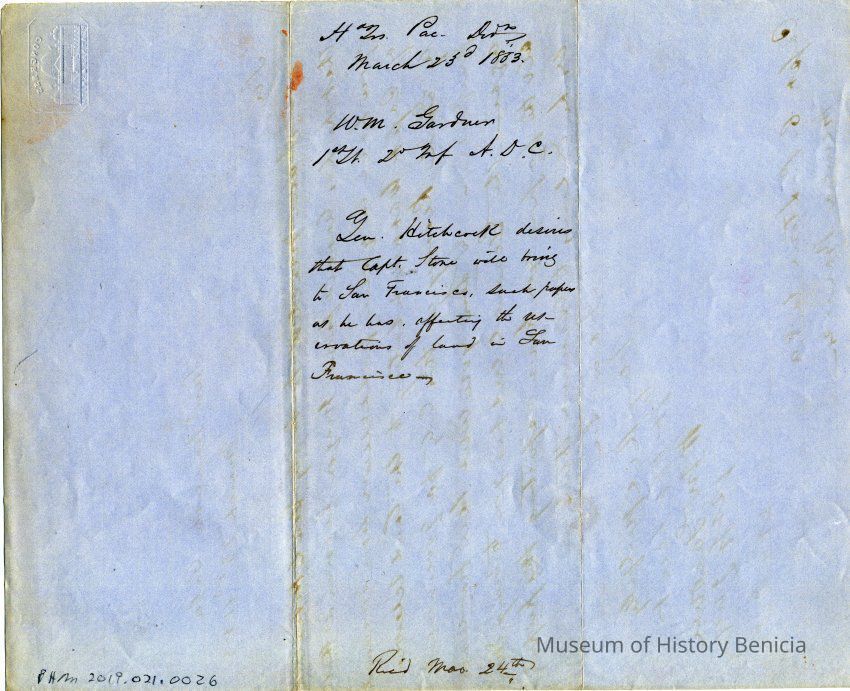 Hd Qrs. Pac. Divn
March 23d 1853.
W.M. Gardner
1st Lt. 2d Inf A.D.C.
Gen. Hitchcock desires
that Capt. Stone will bring
to San Francisco, such papers
as he has, affecting the res-
ervations of land in San
Francisco—
Rec'd Mar 24th
Museum of History Benicia
BHM 2019.021.0026
CONGRESS